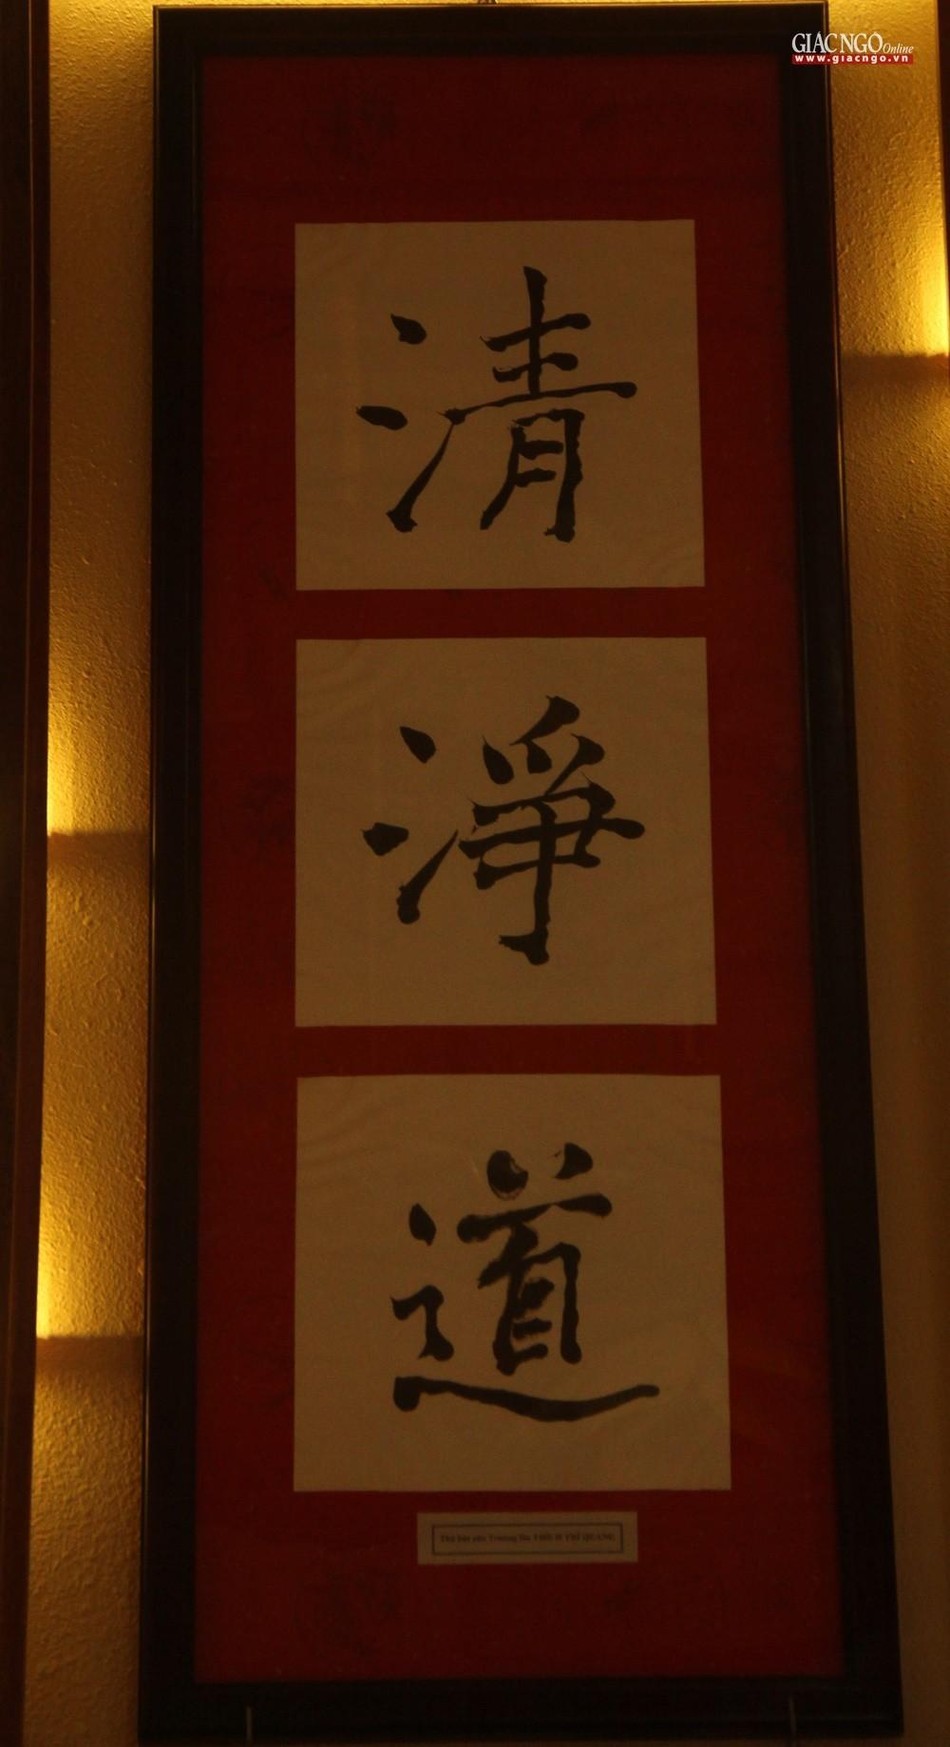 GIÁC NGỘ Online
www.giacngo.vn
清
淨
道
Thủ bút của Trưởng lão THÍCH TRÍ QUANG